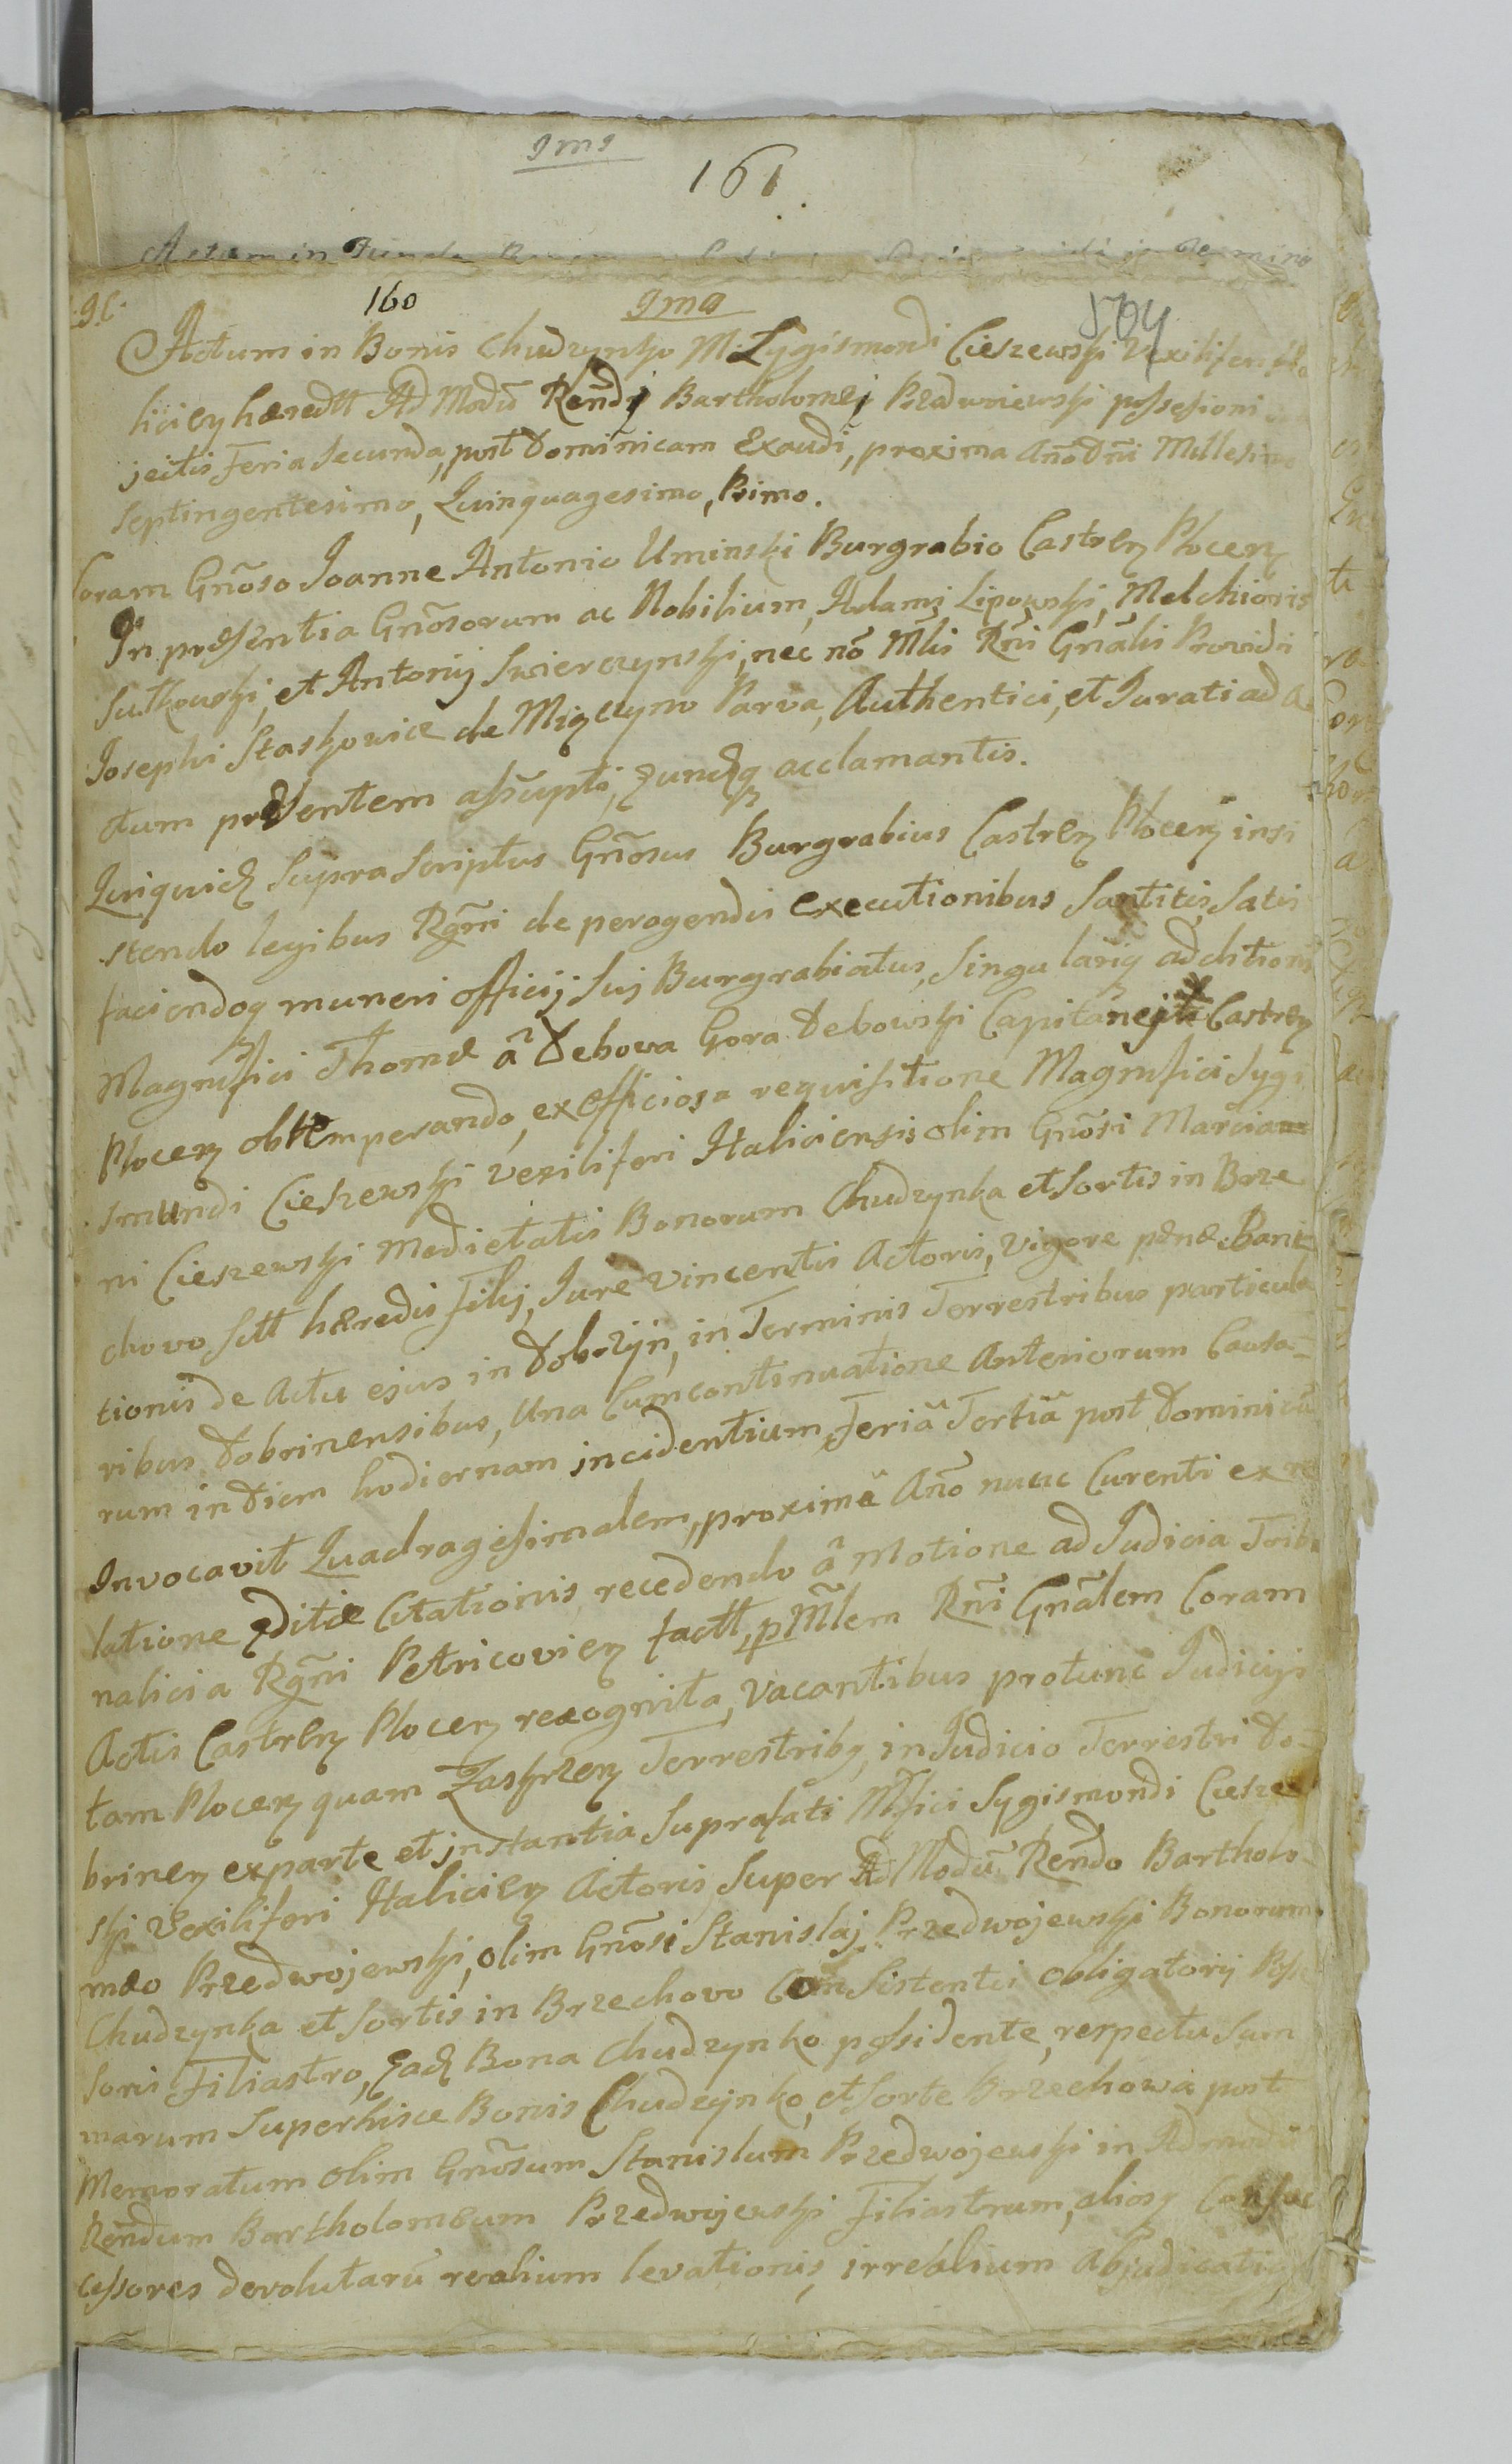 9ma
161
Actum in Fundo
160
9ma
504
Actum in Bonis Chudzynko M. Zygismondi Cieszewski Vexiliferi Ha
licien hæredtt Ad Modū Rēndj Bartholomej Przedwoiewski possessioni
jectis Feria Secunda, post Dominicam Exaudi, proxima Año Dñi Millesimo
Septingentesimo, Quinquagesimo, Primo.
Coram Gñoso Joanne Antonio Uminski Burgrabio Castren Plocen
In præsentia Gñosorum ac Nobilium, Adami Lipowski, Melchioris
Sutkowski, et Antonij Swierczynski, nec nō Mtli Rñi Gñalis Providi
Josephi Staskowicz de Mięczyno Parva, Authentici, et Jurati ad A
ctum præsentem assūpti, eundq acclamantis.
Quiquid Supra Scriptus Gñosus Burgrabius Castren Plocen insi
stendo legibus Rgni de peragendis executionibus Santitis, Satis
faciendoq muneri officij Sui Burgrabiatus, Singulariq adcitioni
Magnifici Thomæ â Debowa Gora Debowski Capitanej Castren
Plocen obtemperando, ex officiosa requisitione Magnifici Sygi
smundi Cieszewski Vexiliferi Haliciensis olim Gñosi Marcia
ni Cieszewski Medietatis Bonorum Chudzynka et Sortis in Brze
chovo Sctt hæredis Filij, Jure Vincentis Actoris, Vigore pænæ Bani
tionis de Actu ejus in Dobrzyn, in Terminis Terrestribus particula
ribus Dobrinensibus, Una Cum continuatione Anteriorum Causa-
rum in Diem hodiernam incidentium, Feriâ Tertiâ post Dominicā
Invocavit Quadragesimalem, proximâ Año nunc Curenti ex re
latione editæ Citationis, recedendo â Motione ad Judicia Tribu
nalicia Rgni Petricovien factt, p Mtlem Rñi Gñalem Coram
Actis Castren Plocen recognita, Vacantibus protunc Judicijs
tam Plocen quam Zaskrzen Terrestribq, in Judicio Terrestri Do-
brinen ex parte et instantia Suprafati Mfici Sygismondi Cieszew
ski Vexiliferi Halicien Actoris, Super Ad Modū Rēndo Bartholo-
mæo Przedwojewski, olim Gñosi Stanislaj Przedwojewski Bonorum
Chudzynka et Sortis in Brzechovo Consistentis obligatorij Posse
soris Filiastro, ead Bona Chudzynko possidente, respectu Sum
marum Super hisce Bonis Chudzynko, et Sorte Brzechowa post
Memoratum olim Gñosum Stanislum Przedwojewski in Admodū
Rēndum Bartholomæum Przedwojewski Filiastrum, aliosq Consuc
cessores devolutarū realium levationis, irrealium Abjudicatio